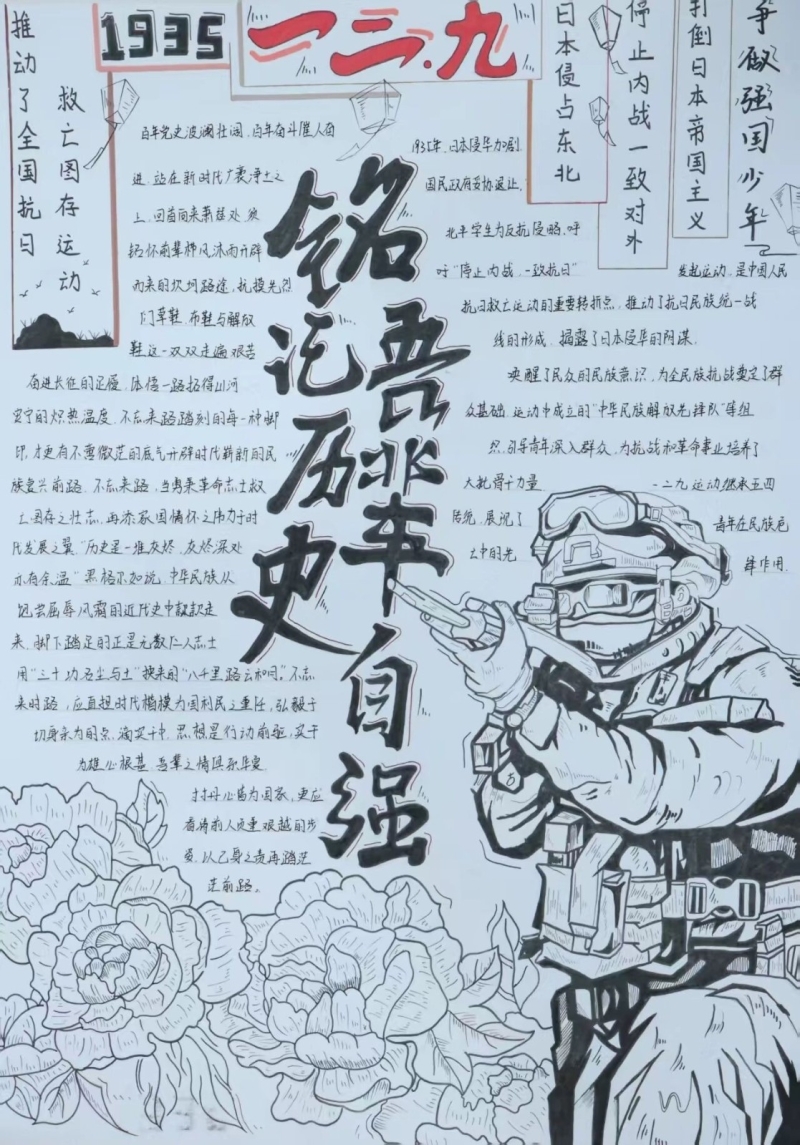 1935 一二·九
推动了全国抗日
救亡图存运动
日本侵占东北
停止内战一致对外
打倒日本帝国主义
争做强国少年
铭记历史
吾辈自强
百年党史波澜壮阔,百年奋斗催人奋
进,站在新时代广袤净土之
上,回首向来萧瑟处,须
怀前辈栉风沐雨开辟
而来的坎坷路途,抚摸先烈
们草鞋,布鞋与解放
鞋这一双双走遍艰苦
奋进长征的足履,体悟一路拓得山河
无宁的炽热温度,不忘来路踏刻的每一种脚
印,才更有不惧微茫的底气开辟时代崭新的民
族复兴前路。不忘来路,当思革命志士救
亡图存之壮志,再添家国情怀之伟力于时
代发展之翼"历史是一堆灰烬,灰烬深处
亦有余温"黑格尔如说,中华民族从
饱尝屈辱风霜的近代史中款款走
来,脚下踏足的正是无数仁人志士
用"三十功名尘与土"换来的"八千里路云和月"。不忘
来时路,应直担时代楷模为国利民之重任,弘毅于
切身求为国点,滴实干中,思想是行动前驱,实干
为雄心根基,吾辈之情俱系华夏
寸寸丹心当为国家,更应
看清前人负重艰越的步
履,以己身之责再踏茫
茫前路。
1935年,日本侵华加剧,
国民政府妥协退让,
北平学生为反抗侵略,呼
吁"停止内战,一致抗日"
发起运动,是中国人民
抗日救亡运动的重要转折点,推动了抗日民族统一战
线的形成,揭露了日本侵华的阴谋。
唤醒了民众的民族意识,为全民族抗战奠定了群
众基础,运动中成立的"中华民族解放先锋队"等组
织,引导青年深入群众,为抗战和革命事业培养了
大批骨干力量
一二九运动继承五四
传统,展现了
青年在民族危
亡中的先
锋作用